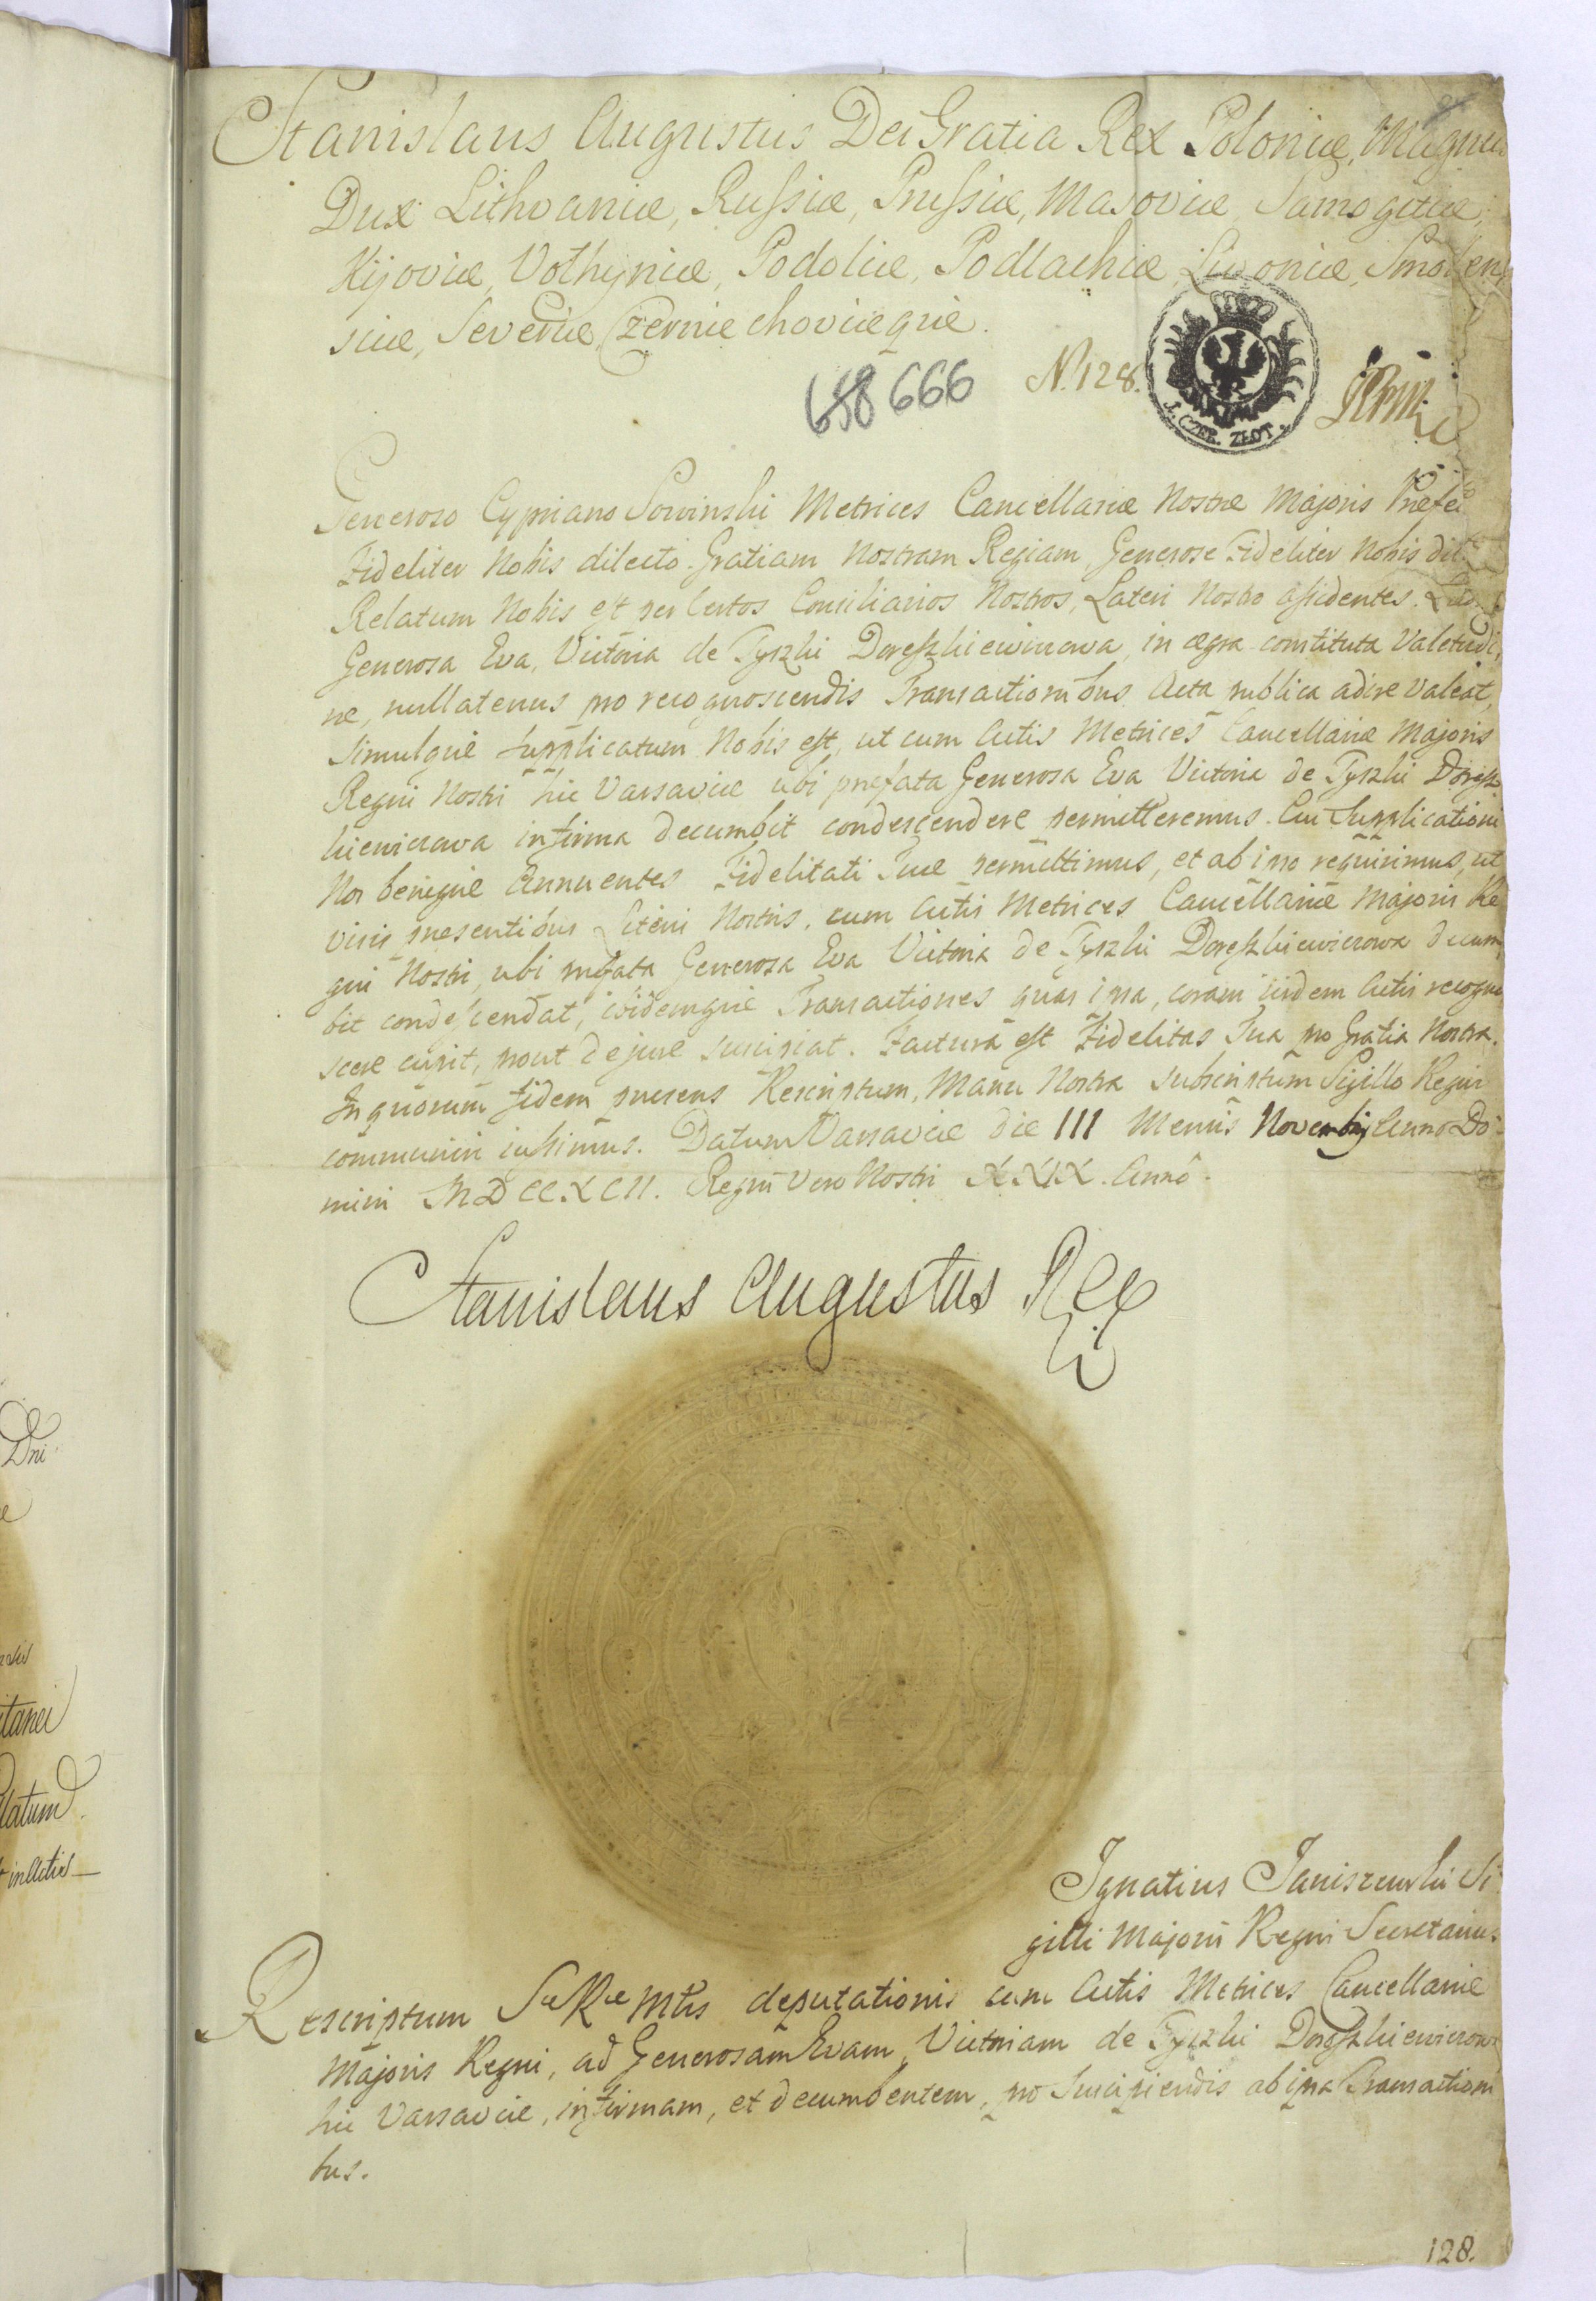 Stanislaus Augustus Dei Gratia Rex Poloniæ, Magnus
Dux Lithvaniæ, Russiæ, Prussiæ, Masoviæ, Samogitiæ,
Kijoviæ, Volhyniæ, Podoliæ, Podlachiæ, Livoniæ, Smolen,
sciæ, Severiæ, Czerniechoviæque.
658 666 N. 128.
1. CZER. ZŁOT.
Generoso Cypriano Sowinski Metrices Cancellariæ Nostræ Majoris Præfec
Fideliter Nobis dilecto. Gratiam Nostram Regiam, Generose Fideliter Nobis dil
Relatum Nobis est per Certos Consiliarios Nostros, Lateri Nostro assidentes.
Generosa Eva, Victoria de Tyszki Doreszkiewiczowa, in ægra constituta Valetudi,
ne, nullatenus pro recognoscendis Transactionibus Acta publica adire valeat,
simulque supplicatum Nobis est, ut cum Actis Metrices Cancellariæ Majoris
Regni Nostri hic Varsaviæ ubi præfata Generosa Eva Victoria de Tyszki Doresz
kiewiczowa infirma decumbit condescendere permitteremus. Cui Supplicationi
Nos benigne Annuentes Fidelitati Tuæ permittimus, et ab ipso requirimus, ut
visis præsentibus Literis Nostris, cum Actis Metrices Cancellariæ Majoris Re
gni Nostri, ubi præfata Generosa Eva Victoria de Tyszki Doreszkiewiczowa decum,
bit condescendat, ibidemque Transactiones quas ipsa, coram iisdem Actis recogno
scere cupit, prout de jure suscipiat. Factura est Fidelitas Tua pro Gratia Nostra.
In quorum fidem præsens Rescriptum, Manu Nostra subscriptum Sigillo Regni
communiri jussimus. Datum Varsaviæ die III Mensis Novembris Anno Do-
mini MDCCXCII. Regni Vero Nostri XXIX. Anno.
Stanislaus Augustus Rex
Ignatius Janiszewski Si
gilli Majoris Regni Secretarius
Rescriptum Sæ Ræ Mtis deputationis cum Actis Metrices Cancellariæ
Majoris Regni, ad Generosam Evam Victoriam de Tyszki Doreszkiewiczow
hic Varsaviæ, infirmam, et decumbentem, pro suscipiendis ab ipsa Transactioni
bus.
128.
Dni
itanei
latum
in Actis